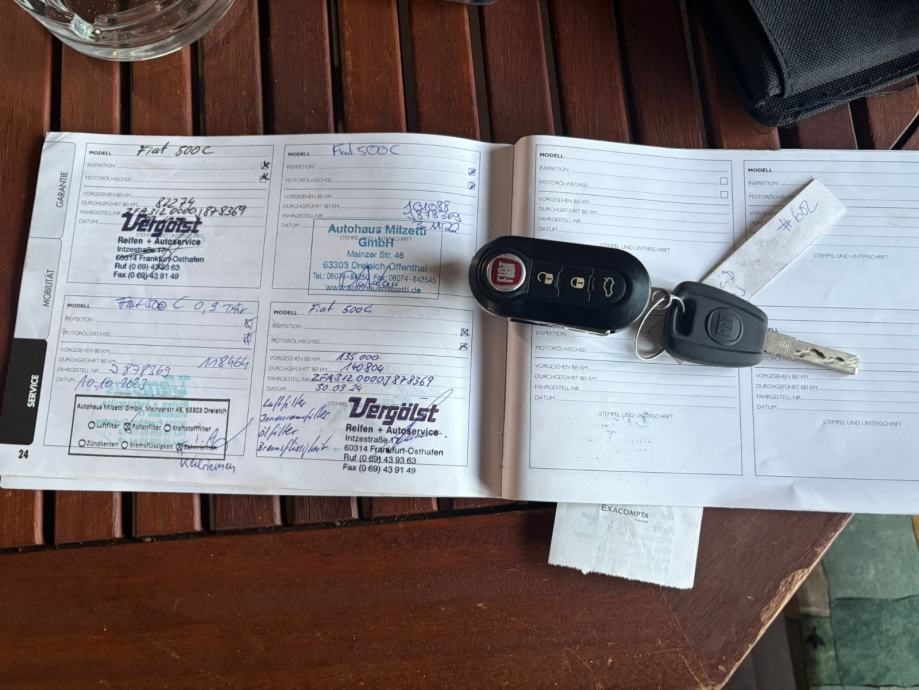 GARANTIE
MOBILITÄT
SERVICE
24
MODELL Fiat 500C
INSPEKTION
MOTORÖLWECHSEL
VORGESEHEN BEI KM
DURCHGEFÜHRT BEI KM 82274
FAHRGESTELL-NR. ZFA3120000J878369
DATUM
Vergölst
Reifen + Autoservice
Intzestraße 17
60314 Frankfurt-Osthafen
Ruf (0 69) 43 93 63
Fax (0 69) 43 91 49
MODELL Fiat 500C
INSPEKTION
MOTORÖLWECHSEL
VORGESEHEN BEI KM
DURCHGEFÜHRT BEI KM 101088
FAHRGESTELL-NR. J878369
DATUM
Autohaus Milzetti
GmbH
Mainzer Str. 46
63303 Dreieich-Offenthal
Tel.: 06074-84250 Fax: 06074-842545
www.autohausmilzetti.de
Fiat 500 C 0,9 TAir
INSPEKTION
MOTORÖLWECHSEL
VORGESEHEN BEI KM
DURCHGEFÜHRT BEI KM 118464
FAHRGESTELL-NR. J878369
DATUM 10.10.2023
Autohaus Milzetti GmbH, Mainzerstr. 46, 63303 Dreieich
Luftfilter Pollenfilter Kraftstofffilter
Zündkerzen Bremsflüssigkeit
Keilriemen
MODELL Fiat 500C
INSPEKTION
MOTORÖLWECHSEL
VORGESEHEN BEI KM 135000
DURCHGEFÜHRT BEI KM 140804
FAHRGESTELL-NR. ZFA3120000J878369
DATUM 30.09.24
Luftfilter
Innenraumfilter
Ölfilter
Bremsflüssigkeit
STEMPEL
Vergölst
Reifen + Autoservice
Intzestraße 17
60314 Frankfurt-Osthafen
Ruf (0 69) 43 93 63
Fax (0 69) 43 91 49
MODELL
INSPEKTION
MOTORÖLWECHSEL
VORGESEHEN BEI KM
DURCHGEFÜHRT BEI KM
FAHRGESTELL-NR.
DATUM
MODELL
INSPEKTION
MOTORÖLWECHSEL
VORGESEHEN BEI KM
DURCHGEFÜHRT BEI KM
FAHRGESTELL-NR.
DATUM
STEMPEL UND UNTERSCHRIFT
#602
FIAT
MOTORÖLWECHSEL
VORGESEHEN BEI KM
DURCHGEFÜHRT BEI KM
FAHRGESTELL-NR.
DATUM
STEMPEL UND UNTERSCHRIFT
DURCHGEFÜHRT BEI KM
FAHRGESTELL-NR.
DATUM
STEMPEL UND UNTERSCHRIFT
EXACOMPTA